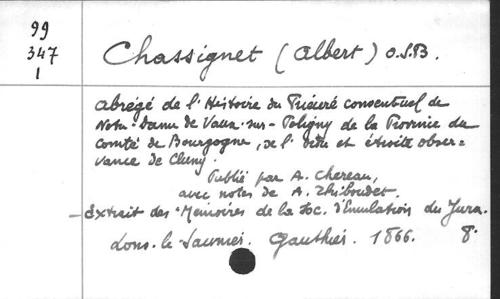 99
347
1
Chassignet (Albert) O.S.B.
Abrégé de l'Histoire du Prieuré conventuel de
Notre-Dame de Vaux-sur-Poligny de la Province du
comté de Bourgogne, de l'ordre et étroite obser=
vance de Cluny.
Publié par A. Chereau,
avec notes de A. Thiboudet.
- Extrait des "Mémoires de la Soc. d'Emulation du Jura.
Lons-le-Saunier. Gauthier. 1866. 8°